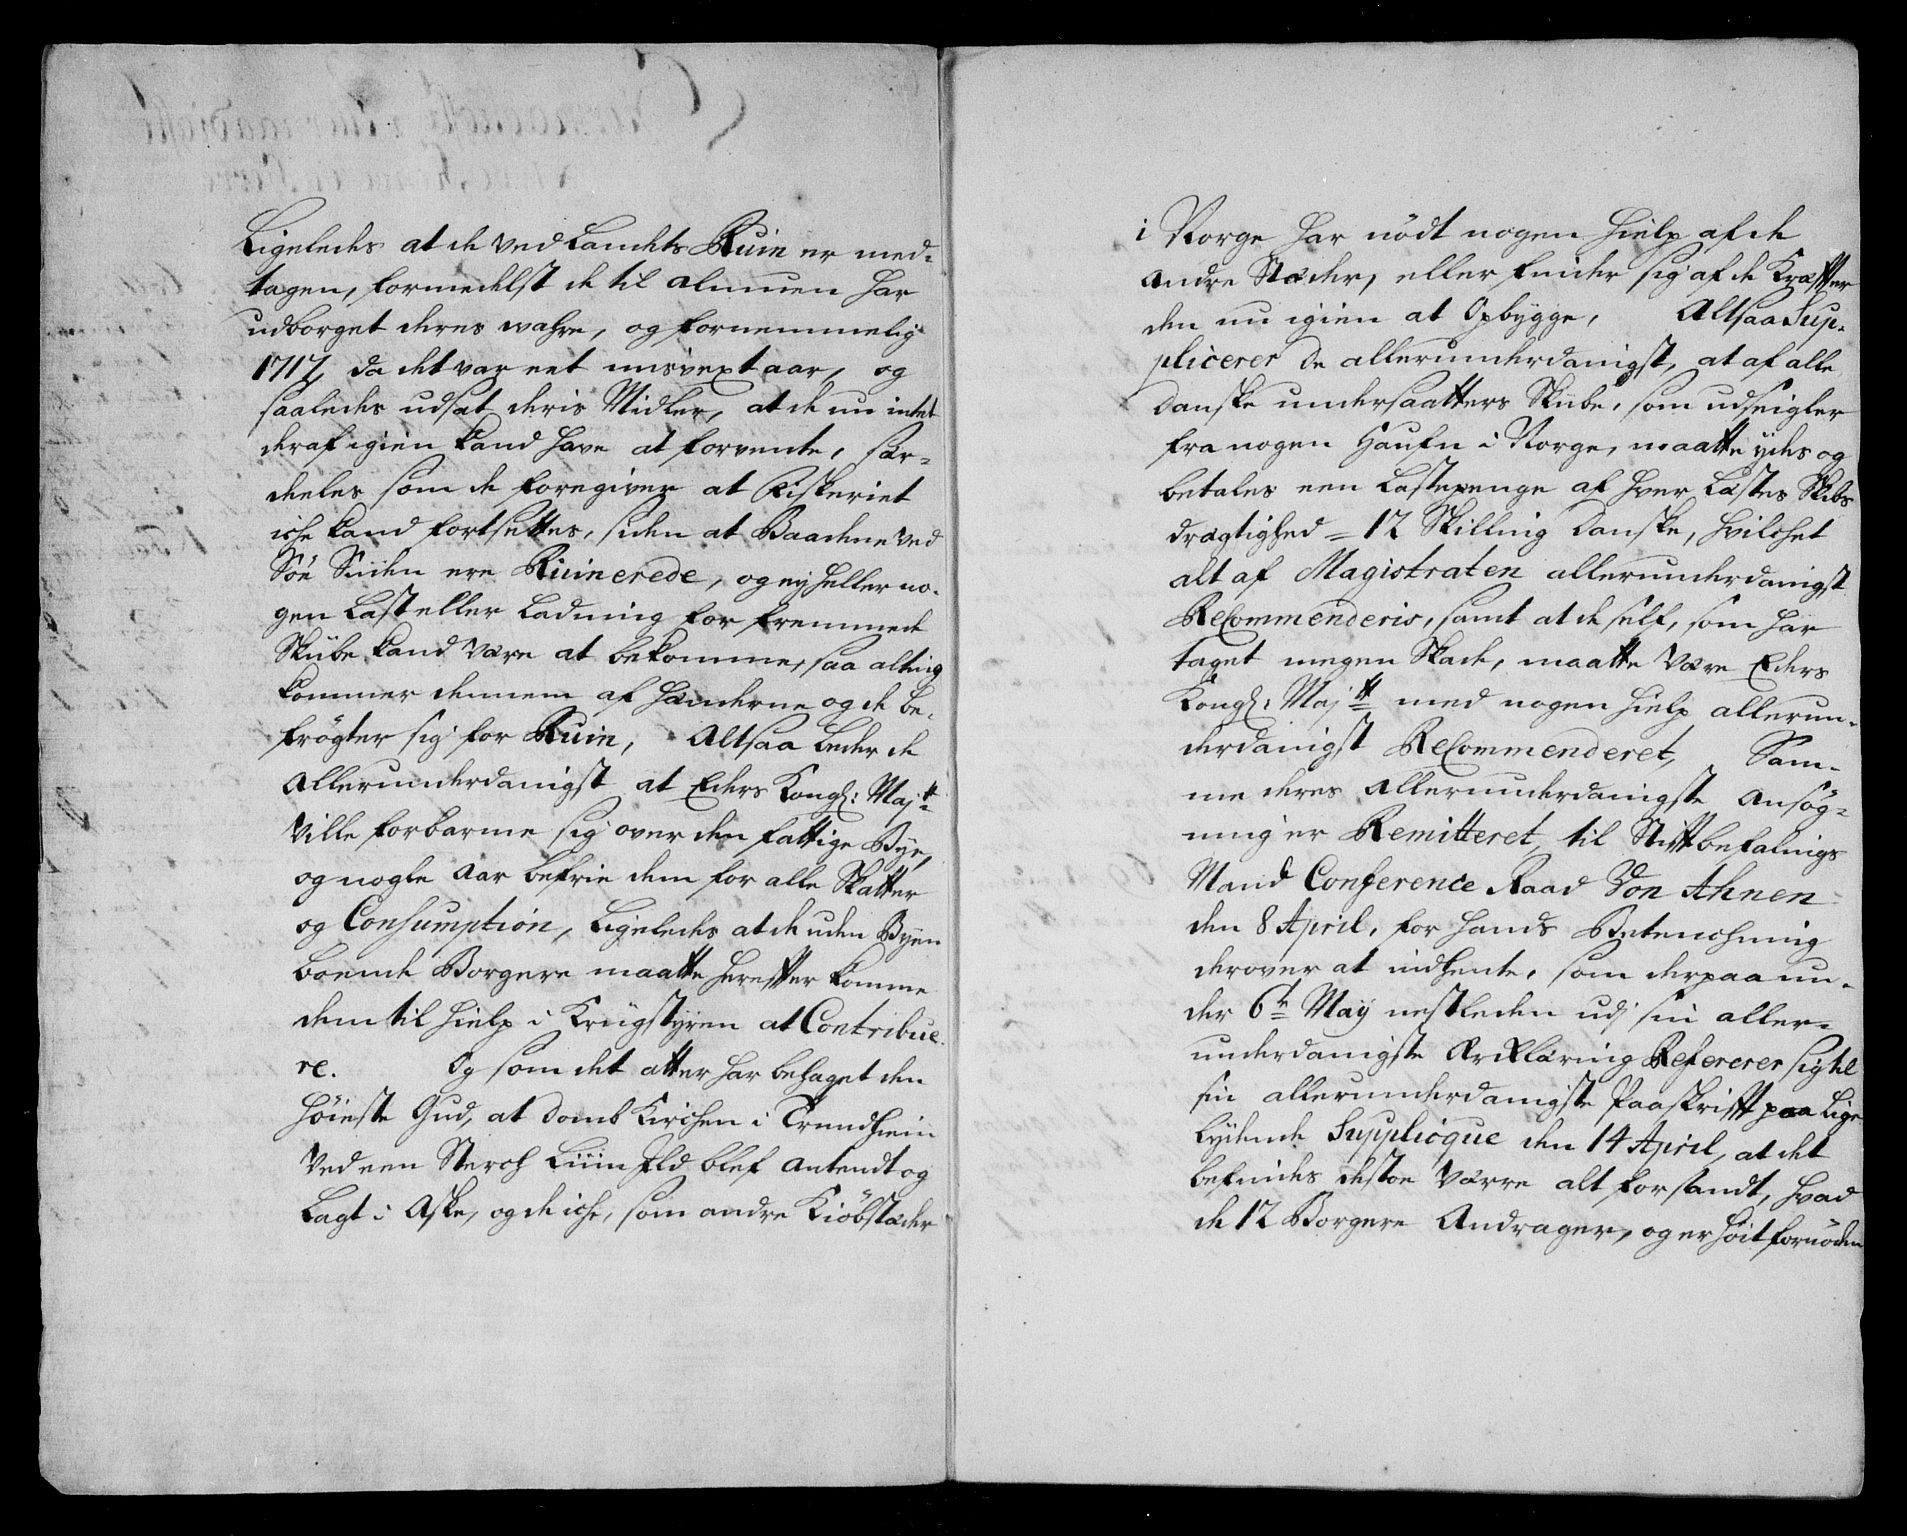 Ligeledes at de ved Landets Ruin er med-
tagen, formedelst de til almuen har
udborget deres wahre, og fornemmelig
1717, da det var eet misvext aar, og
saaledes udsat deris Midler, at de nu intet
deraf igien kand have at forvente, sær-
deeles som de foregiver at Fiskeriet
iche kand fortsettes, siden at Baadene ved
Söe Siiden ere Ruinerede, og ey heller no-
gen Last eller Ladning for fremmede
Skibe kand være at bekomme, saa alting
kommer dennem af Hænderne og de be-
frögter sig for Ruin, Altsaa beder de
allerunderdanigst at Eders Kongl: Majtt
Ville forbarme sig over den fattige Bye,
og nogle Aar befrie dem for alle Skatter
og Consumption, Ligeledes at de uden Byen
boende Borgere maatte herefter komme
dem til hielp i Krigstyren at Contribue-
re. Og som det atter har behaget den
höieste Gud, at Domb Kirchen i Trundhiem
Ved een Sterch Liün Ild blef antendt og
Lagt i Aske, og de iche, som andre Kiöbstæder
i Norge har nödt nogen hielp af de
andre Stæder, eller finder sig af de Kræffter
den nu igien at Opbygge, Altsaa Sup-
plicerer de allerunderdanigst, at af alle
Danske undersaatters Skibe, som udseigler
fra nogen Haufn i Norge, maatte ydes og
betales een Lastepenge af hver Læstes Skibs
drægtighed = 12 Skilling Danske, hvilchet
alt af Magistraten allerunderdanigst
ReCommenderis, samt at de self, som har
taget megen Skade, maatte være Eders
Kongl: Majtt med nogen hielp allerun-
derdanigst ReCommenderet, Sam-
me deres allerunderdanigste Ansög-
ning er Remitteret til Stiftbefalings
Mand Conference Raad Von Ahnen
den 8 April, for hands Betenchning
derover at indhente, som derpaa un-
der 6te May nestleden udj sin aller-
underdanigste Erklæring Refererer sig til
sin allerunderdanigste Paaskrifft paa lige
lydende Supplicque den 14 April, at det
befindes desto værre alt for sandt, hvad
de 12 Borgere Andrager, og er höit fornöden